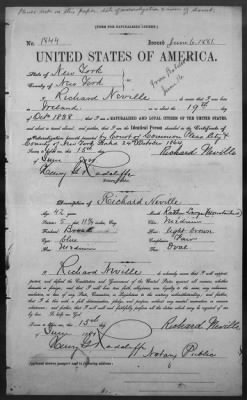 Please note on this paper, date of naturalization
[FORM FOR NATURALIZED CITIZEN.]
No. 1844 Issued June 16. 1881
UNITED STATES OF AMERICA.
State of New York
County of New York
I, Richard Neville do swear that I was born
in Ireland on or about the 19th day
of Oct 1838
that I am a NATURALIZED AND LOYAL CITIZEN OF THE UNITED STATES,
and about to travel abroad; and further, that I am the Identical Person described in the Certificate of
Naturalization herewith presented by Court of Common Pleas City &
County of New York dated 24 October 1864
Sworn to before me, this 15th
day of June 1881
Richard Neville
Description of Richard Neville
Age: 42 years
Stature: 5 feet inches, Eng.
Forehead: Broad
Eyes: blue
Nose: Medium
Mouth:
Chin: Medium
Hair: light brown
Complexion: Fair
Face: Oval
I, Richard Neville do solemnly swear that I will support, protect,
and defend the Constitution and Government of the United States against all enemies, whether
domestic or foreign; and that I will bear true faith, allegiance, and loyalty to the same, any ordinance,
resolution, or law of any State, Convention, or Legislature to the contrary notwithstanding; and further,
that I do this with a full determination, pledge, and purpose, without any mental reservation or evasion
whatsoever; and further, that I will well and faithfully perform all the duties which may be required of me
by law. So help me God.
Sworn to before me, this 15th
day of June 1881
Richard Neville
Notary Public
Applicant desires passport sent to following address: